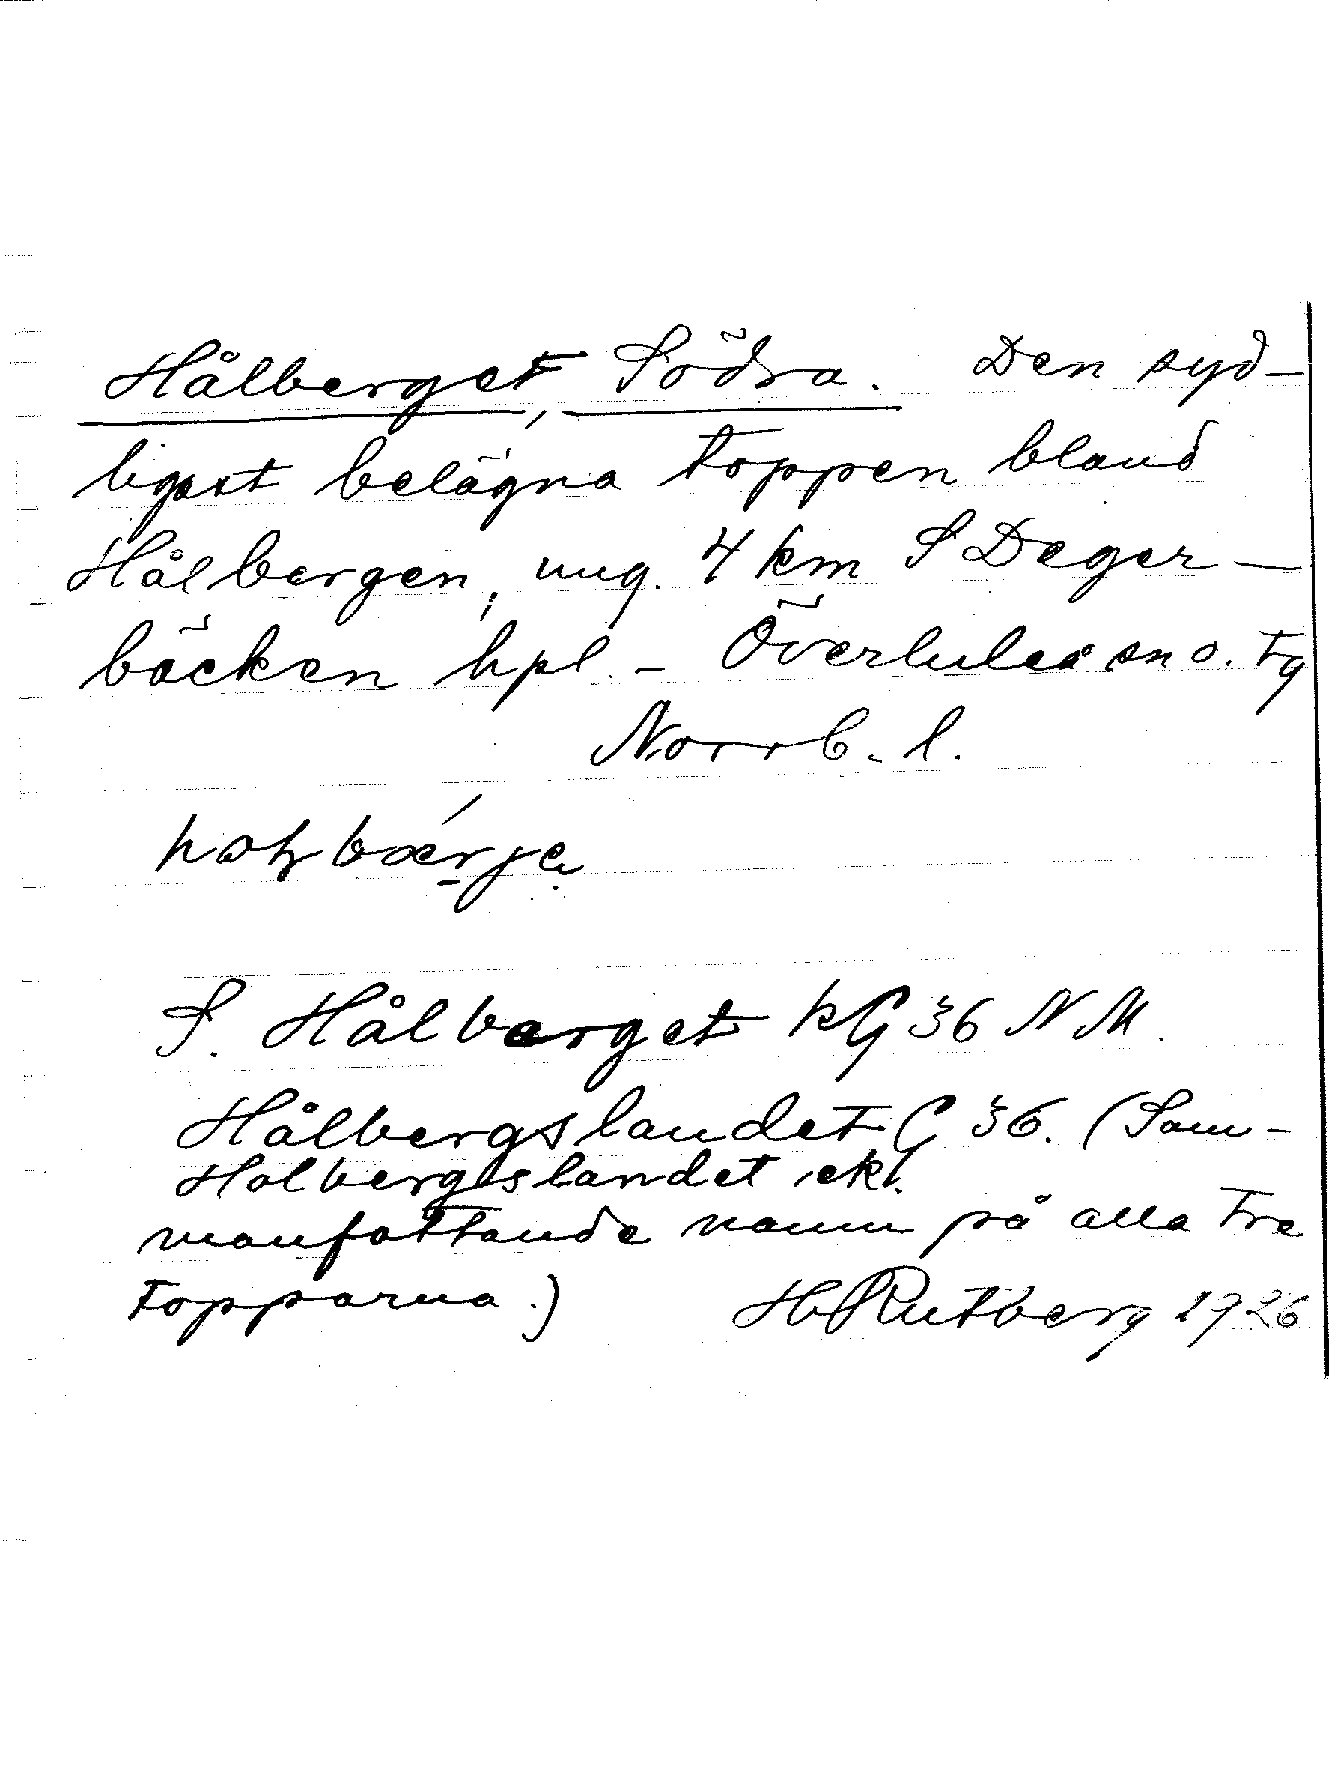 Hålberget, Södra. Den syd-
ligast belägna toppen bland
Hålbergen, ung. 4 km S Deger-
bäcken hpl. - Överluleå sn o. tg
Norrb. l.
S. Hålberget kG 36 NM.
Hålbergslandet G 36. (Sam-
Holbergslandet ek.
manfattande namn på alla tre
topparna.) H Rutberg 1926